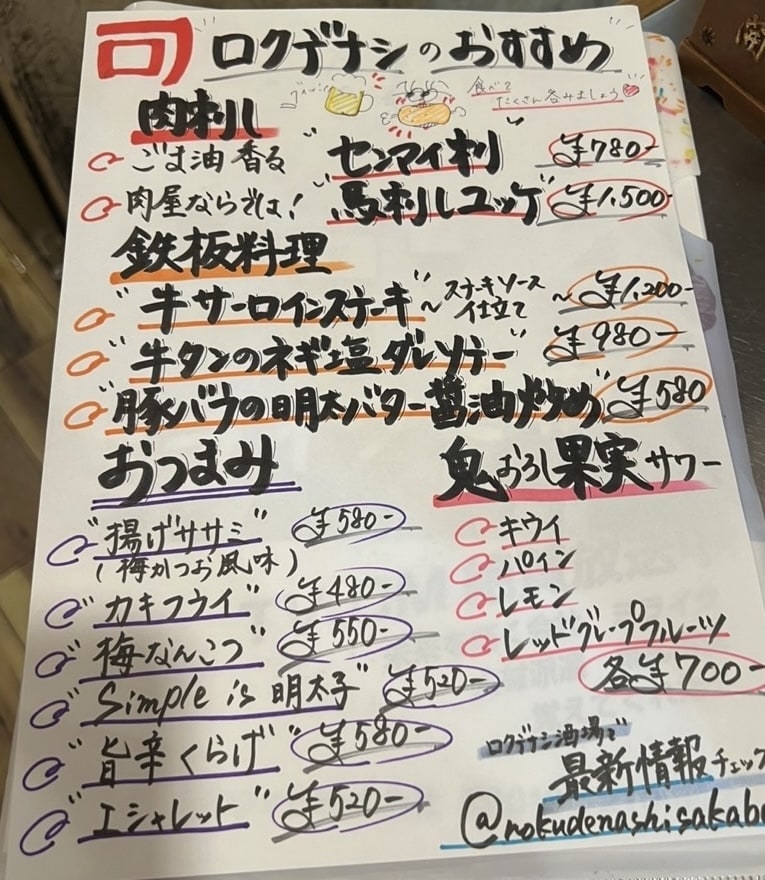 司 ロクデナシのおすすめ
食べて
たくさん呑みましょう
肉刺し
ごま油香る "センマイ刺" ¥780-
肉屋ならでは! "馬刺しユッケ" ¥1,500-
鉄板料理
"牛サーロインステーキ" ~ステーキソース仕立て~ ¥1,200-
"牛タンのネギ塩ダレソテー" ¥980-
"豚バラの明太バター醤油炒め" ¥580
おつまみ
"揚げササミ" ¥580-
(梅かつお風味)
"カキフライ" ¥480-
"梅なんこつ" ¥550-
"Simple is 明太子" ¥520-
"旨辛くらげ" ¥580-
"エシャレット" ¥520-
鬼おろし果実サワー
キウイ
パイン
レモン
レッドグレープフルーツ
各¥700-
ロクデナシ酒場で
最新情報チェック
@rokudenashisakaba